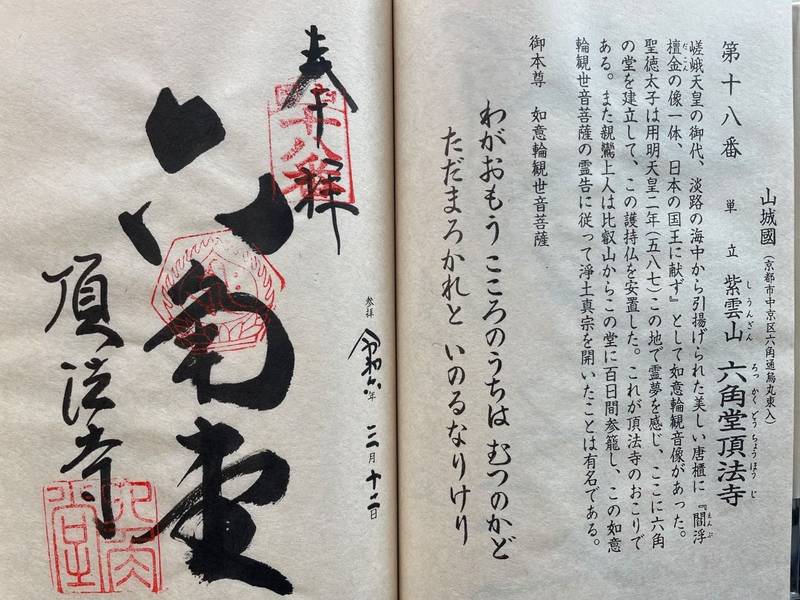 山城國（京都市中京区六角通烏丸東入）
第十八番　単立　紫雲山　六角堂頂法寺
しうんざん　ろっかくどうちょうほうじ
嵯峨天皇の御代、淡路の海中から引揚げられた美しい唐櫃に『閻浮
えんぶ
檀金の像一体、日本の国王に献ず』として如意輪観音像があった。
だごん
聖徳太子は用明天皇二年（五八七）この地で霊夢を感じ、ここに六角
の堂を建立して、この護持仏を安置した。これが頂法寺のおこりで
ある。また親鸞上人は比叡山からこの堂に百日間参籠し、この如意
輪観世音菩薩の霊告に従って淨土真宗を開いたことは有名である。
御本尊　如意輪観世音菩薩
わがおもう こころのうちは むつのかど
ただまろかれと いのるなりけり
奉拝
十八番
参拝　令和六年　三月十二日
六角堂
頂法寺
六角堂